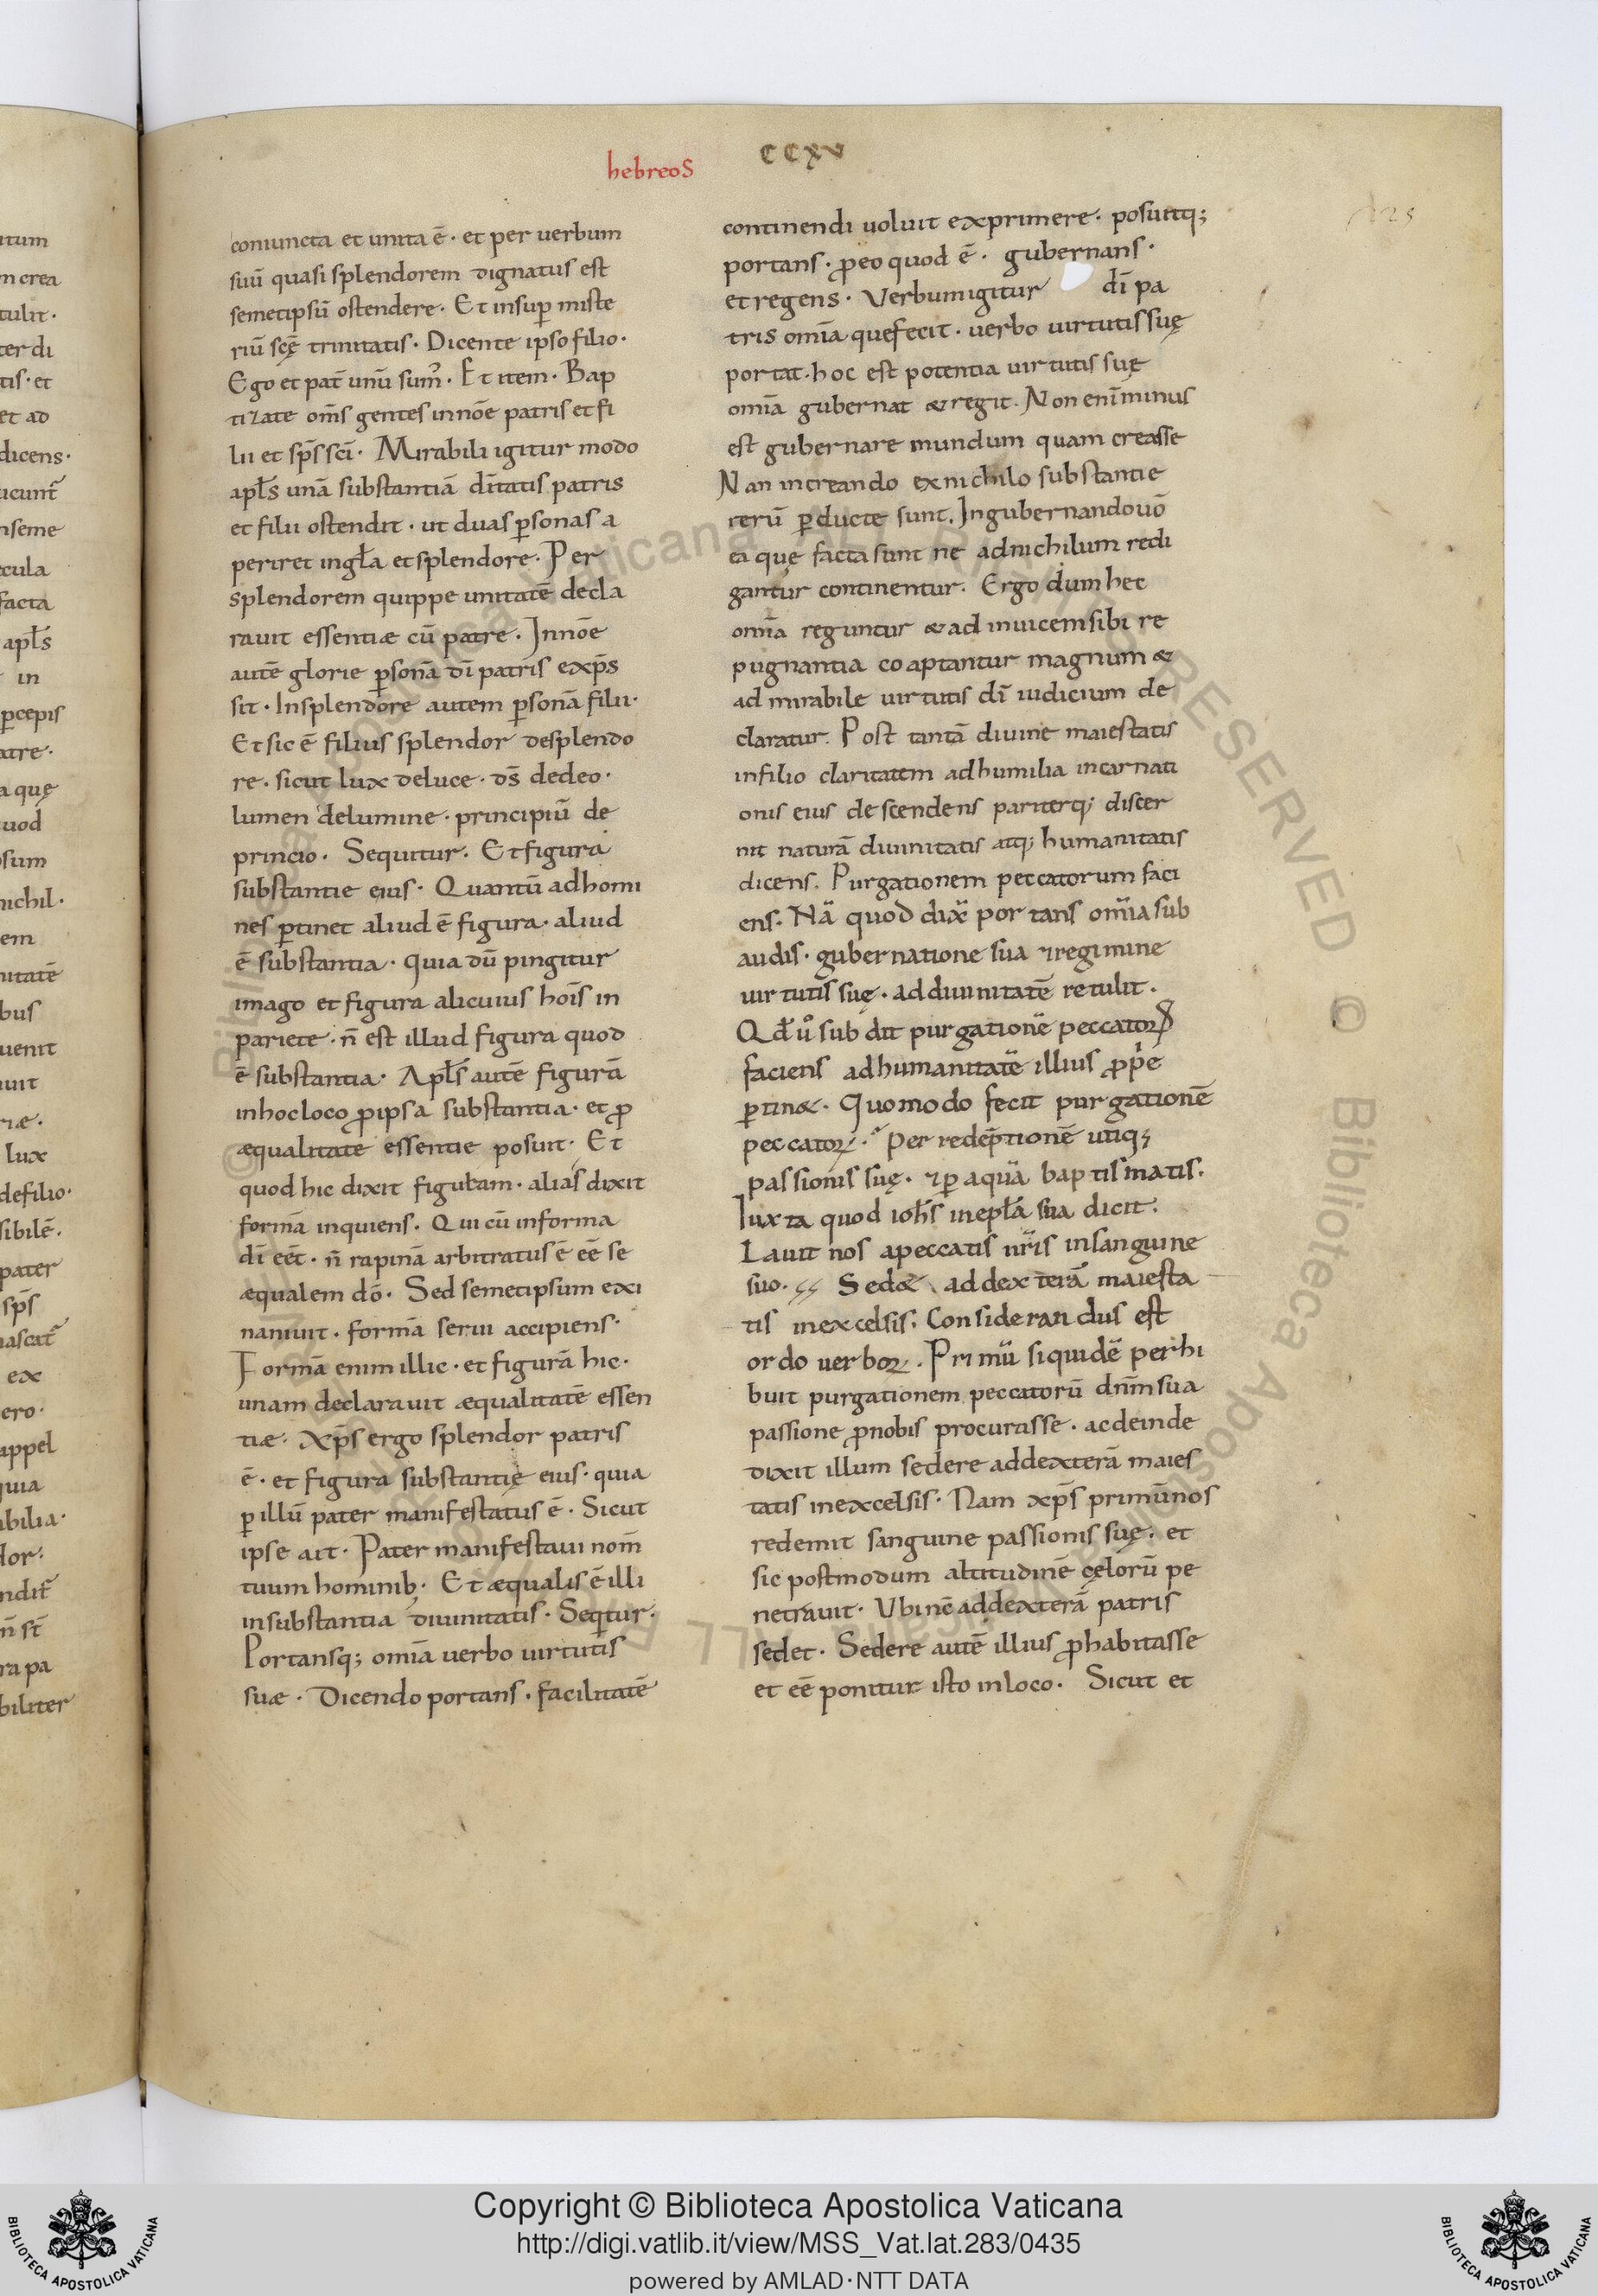 hebreos
CCXV
125
coniuncta et unita ē · et per uerbum
suū quasi splendorem dignatus est
semetipsū ostendere · Et insuꝑ miste
riū scę̄ trinitatis · Dicente ipso filio ·
Ego et pat̄ unū sumꝰ · Et item · Bap
tizate om̄s gentes in nōe patris et fi
lii et sp̄s sci̅ · Mirabili igitur modo
apl̄s unā substantiā di̅tatis patris
et filii ostendit · ut duas ꝑsonas a
periret in gl̄a et splendore · Per
splendorem quippe unitatē decla
rauit essentiæ cū patre · In nōe
autē glorie ꝑsonā di̅ patris exp̄s
sit · In splendore autem ꝑsonā filii ·
Et sic ē filius splendor de splendo
re · sicut lux de luce · ds̄ de deo ·
lumen de lumine · principiū de
princio · Sequitur · Et figura
substantie eius · Quantū ad homi
nes ꝑtinet aliud ē figura · aliud
ē substantia · quia dū pingitur
imago et figura alicuius hoīs in
pariete · n̄ est illud figura quod
ē substantia · Apl̄s autē figurā
in hoc loco ꝓ ipsa substantia · et ꝓ
æqualitate essentie posuit · Et
quod hic dixit figuram · alias dixit
formā inquiens · Qui cū in forma
di̅ eēt · n̄ rapinā arbitratus ē eē se
æqualem dō · Sed semetipsum exi
naniuit · formā serui accipiens ·
Formā enim illic · et figurā hic ·
unam declarauit æqualitatē essen
tiæ · xp̄s ergo splendor patris
ē · et figura substantię eius · quia
ꝑ illū pater manifestatus ē · Sicut
ipse ait · Pater manifestaui nom̄
tuum hominib; · Et æqualis ē illi
in substantia diuinitatis · Seqtur ·
Portansq; omīa uerbo uirtutis
suæ · Dicendo portans · facilitatē
continendi uoluit exprimere · posuitq;
portans · ꝓ eo quod ē · gubernans ·
et regens · Verbum igitur di̅ pa
tris omīa que fecit · uerbo uirtutis suę
portat · hoc est potentia uirtutis suę
omīa gubernat & regit · Non eni̅ minus
est gubernare mundum quam creasse
Nan in creando ex nichilo substantie
rerū ꝑducte sunt · In gubernando uō
ea quę facta sunt ne ad nichilum redi
gantur continentur · Ergo dum hec
omīa reguntur & ad inuicem sibi re
pugnantia coaptantur magnum &
admirabile uirtutis di̅ iudicium de
claratur · Post tantā diuine maiestatis
in filio claritatem ad humilia incarnati
onis eius descendens pariterq; discer
nit naturā diuinitatis atq; humanitatis
dicens · Purgationem peccatorum faci
ens · Nā quod dix̄ portans omīa sub
audis · gubernatione sua ⁊ regimine
uirtutis suę · ad diuinitatē retulit ·
Qd̄ uͦ subdit purgationē peccatoꝝ
faciens ad humanitatē illius ꝓpⁱe
ꝑtin& · Quomodo fecit purgationē
peccatoꝝ · Per redēptionē utiq;
passionis suę · ⁊ ꝑ aquā baptismatis ·
Iuxta quod ioh̄s in epl̄a sua dicit ·
Lauit nos a peccatis nr̄is in sanguine
suo · Sed& ad dexterā maiesta
tis in excelsis · Considerandus est
ordo uerboꝝ · Primū siquidē perhi
buit purgationem peccatorū dnm̄ sua
passione ꝓ nobis procurasse · ac deinde
dixit illum sedere ad dexterā maies
tatis in excelsis · Nam xp̄s primū nos
redemit sanguine passionis suę · et
sic postmodum altitudinē cęlorū pe
netrauit · Vbi nē ad dexterā patris
sedet · Sedere autē illius ꝓ habitasse
et eē ponitur isto in loco · Sicut et
Copyright © Biblioteca Apostolica Vaticana
http://digi.vatlib.it/view/MSS_Vat.lat.283/0435
powered by AMLAD·NTT DATA